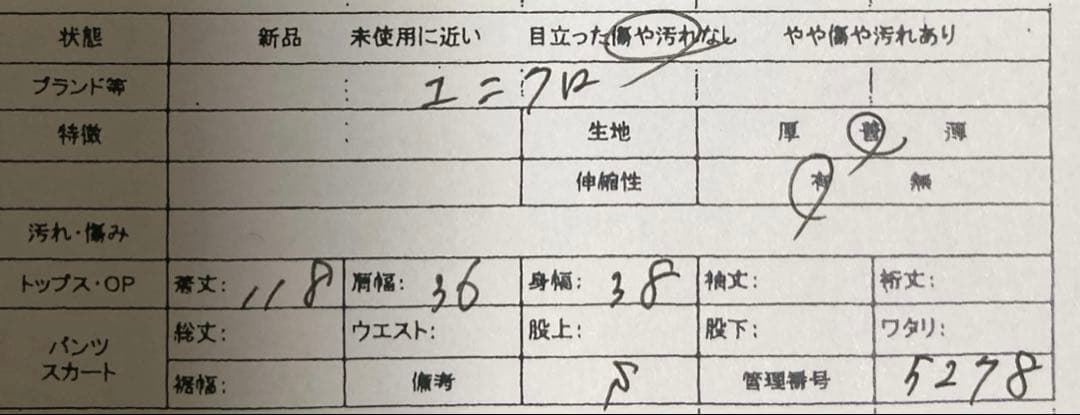 状態 新品 未使用に近い 目立った傷や汚れなし やや傷や汚れあり
ブランド等 ユニクロ
特徴 生地 厚 普 薄
伸縮性 有 無
汚れ・傷み
トップス・OP 着丈: 118 肩幅: 36 身幅: 38 袖丈: 裄丈:
パンツ スカート 総丈: ウエスト: 股上: 股下: ワタリ:
裾幅: 備考 管理番号 5278